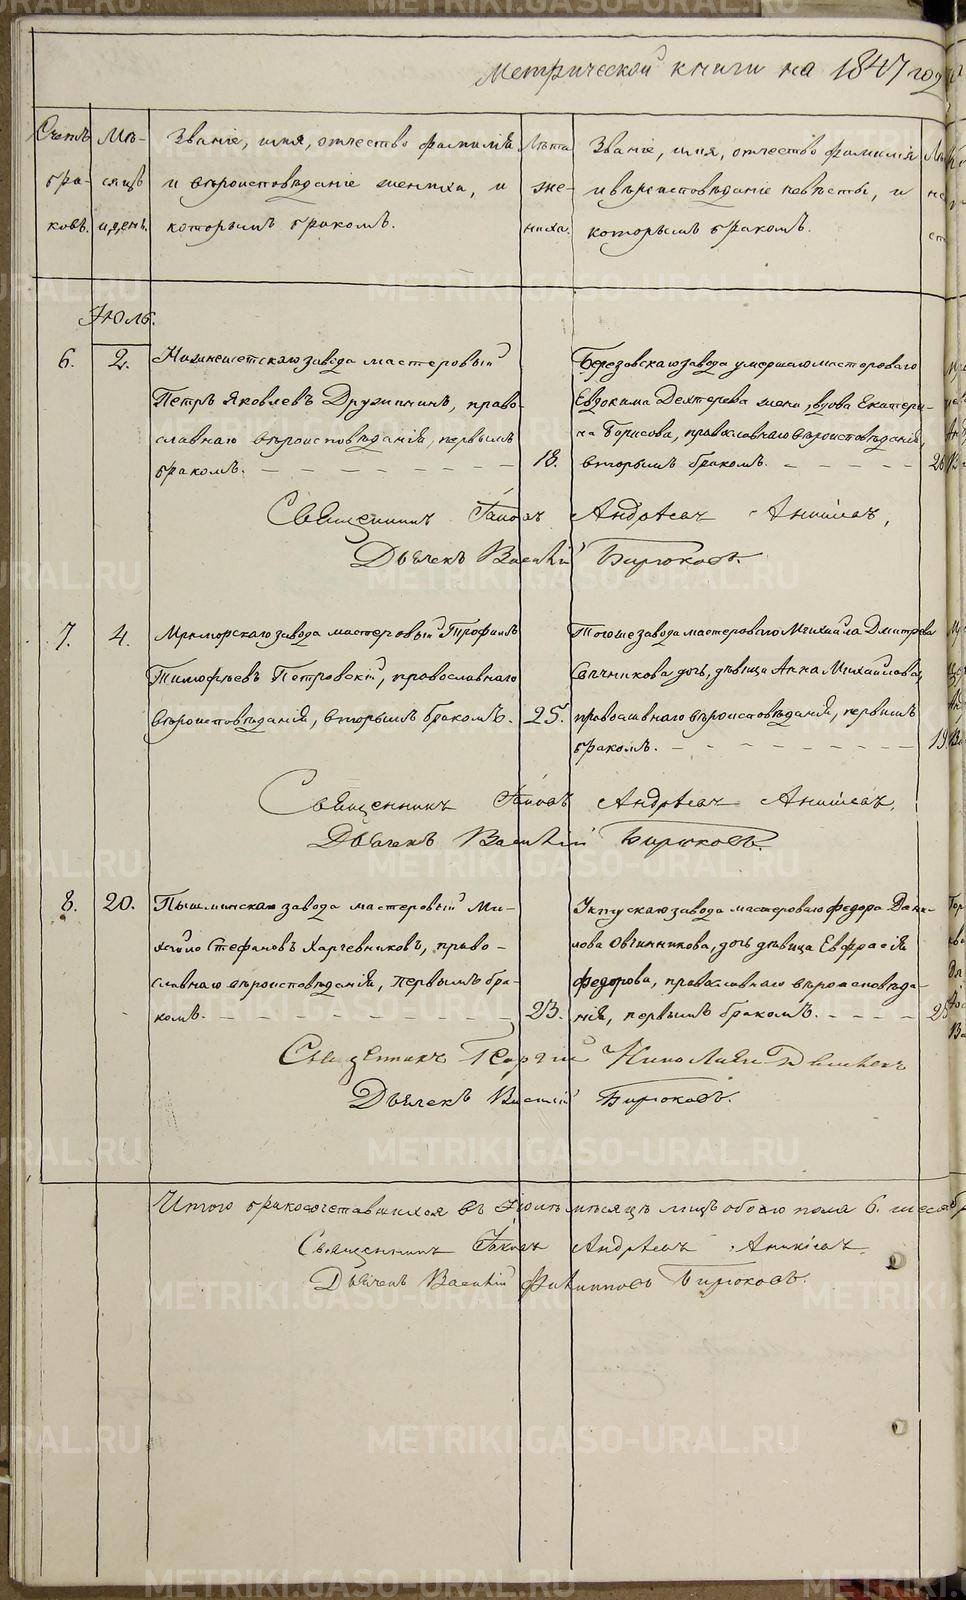 Метрической книги на 1847 год
Счетъ бра- ковъ.
Мѣ- сяцъ и день.
Званіе, имя, отчество фамилія
и вѣроисповѣданіе жениха, и
которымъ бракомъ.
Лѣта же- ниха.
Званіе, имя, отчество фамилія
и вѣроисповѣданіе невѣсты, и
которымъ бракомъ.
Іюль.
6. 2. Нижнеисетскаго завода мастеровый
Петръ Яковлевъ Дружининъ, право-
славнаго вѣроисповѣданія, первымъ
бракомъ. 18.
Березовскаго завода умершаго мастероваго
Евдокима Дехтерева жена, вдова Екатери-
на Борисова, православнаго вѣроисповѣданія,
вторымъ бракомъ. 26
Священникъ Іаковъ Андреевъ Аникіевъ,
Дьячекъ Василій Бирюковъ.
7. 4. Мраморскаго завода мастеровый Трофимъ
Тимофѣевъ Петровскій, православнаго
вѣроисповѣданія, вторымъ бракомъ. 25.
Тогоже завода мастероваго Михайла Дмитрева
Свѣчникова дочь, дѣвица Анна Михайлова,
православнаго вѣроисповѣданія, первымъ
бракомъ. 19
Священникъ Іаковъ Андреевъ Аникіевъ,
Дьячекъ Василій Бирюковъ.
8. 20. Пышминскаго завода мастеровый Ми-
хайло Стефановъ Харчевниковъ, право-
славнаго вѣроисповѣданія, первымъ бра-
комъ. 23.
Уктускаго завода мастероваго Федора Дани-
лова Овчинникова, дочь дѣвица Евфрасія
Федорова, православнаго вѣроисповѣда-
нія, первымъ бракомъ.
Священникъ Георгій Николаевъ
Дьячекъ Василій Бирюковъ.
Итого бракосочетавшихся въ Іюлѣ мѣсяцѣ лицъ обоего пола 6.
Священникъ Іаковъ Андреевъ Аникіевъ.
Дьячекъ Василій Филипповъ Бирюковъ.
METRIKI.GASO-URAL.RU